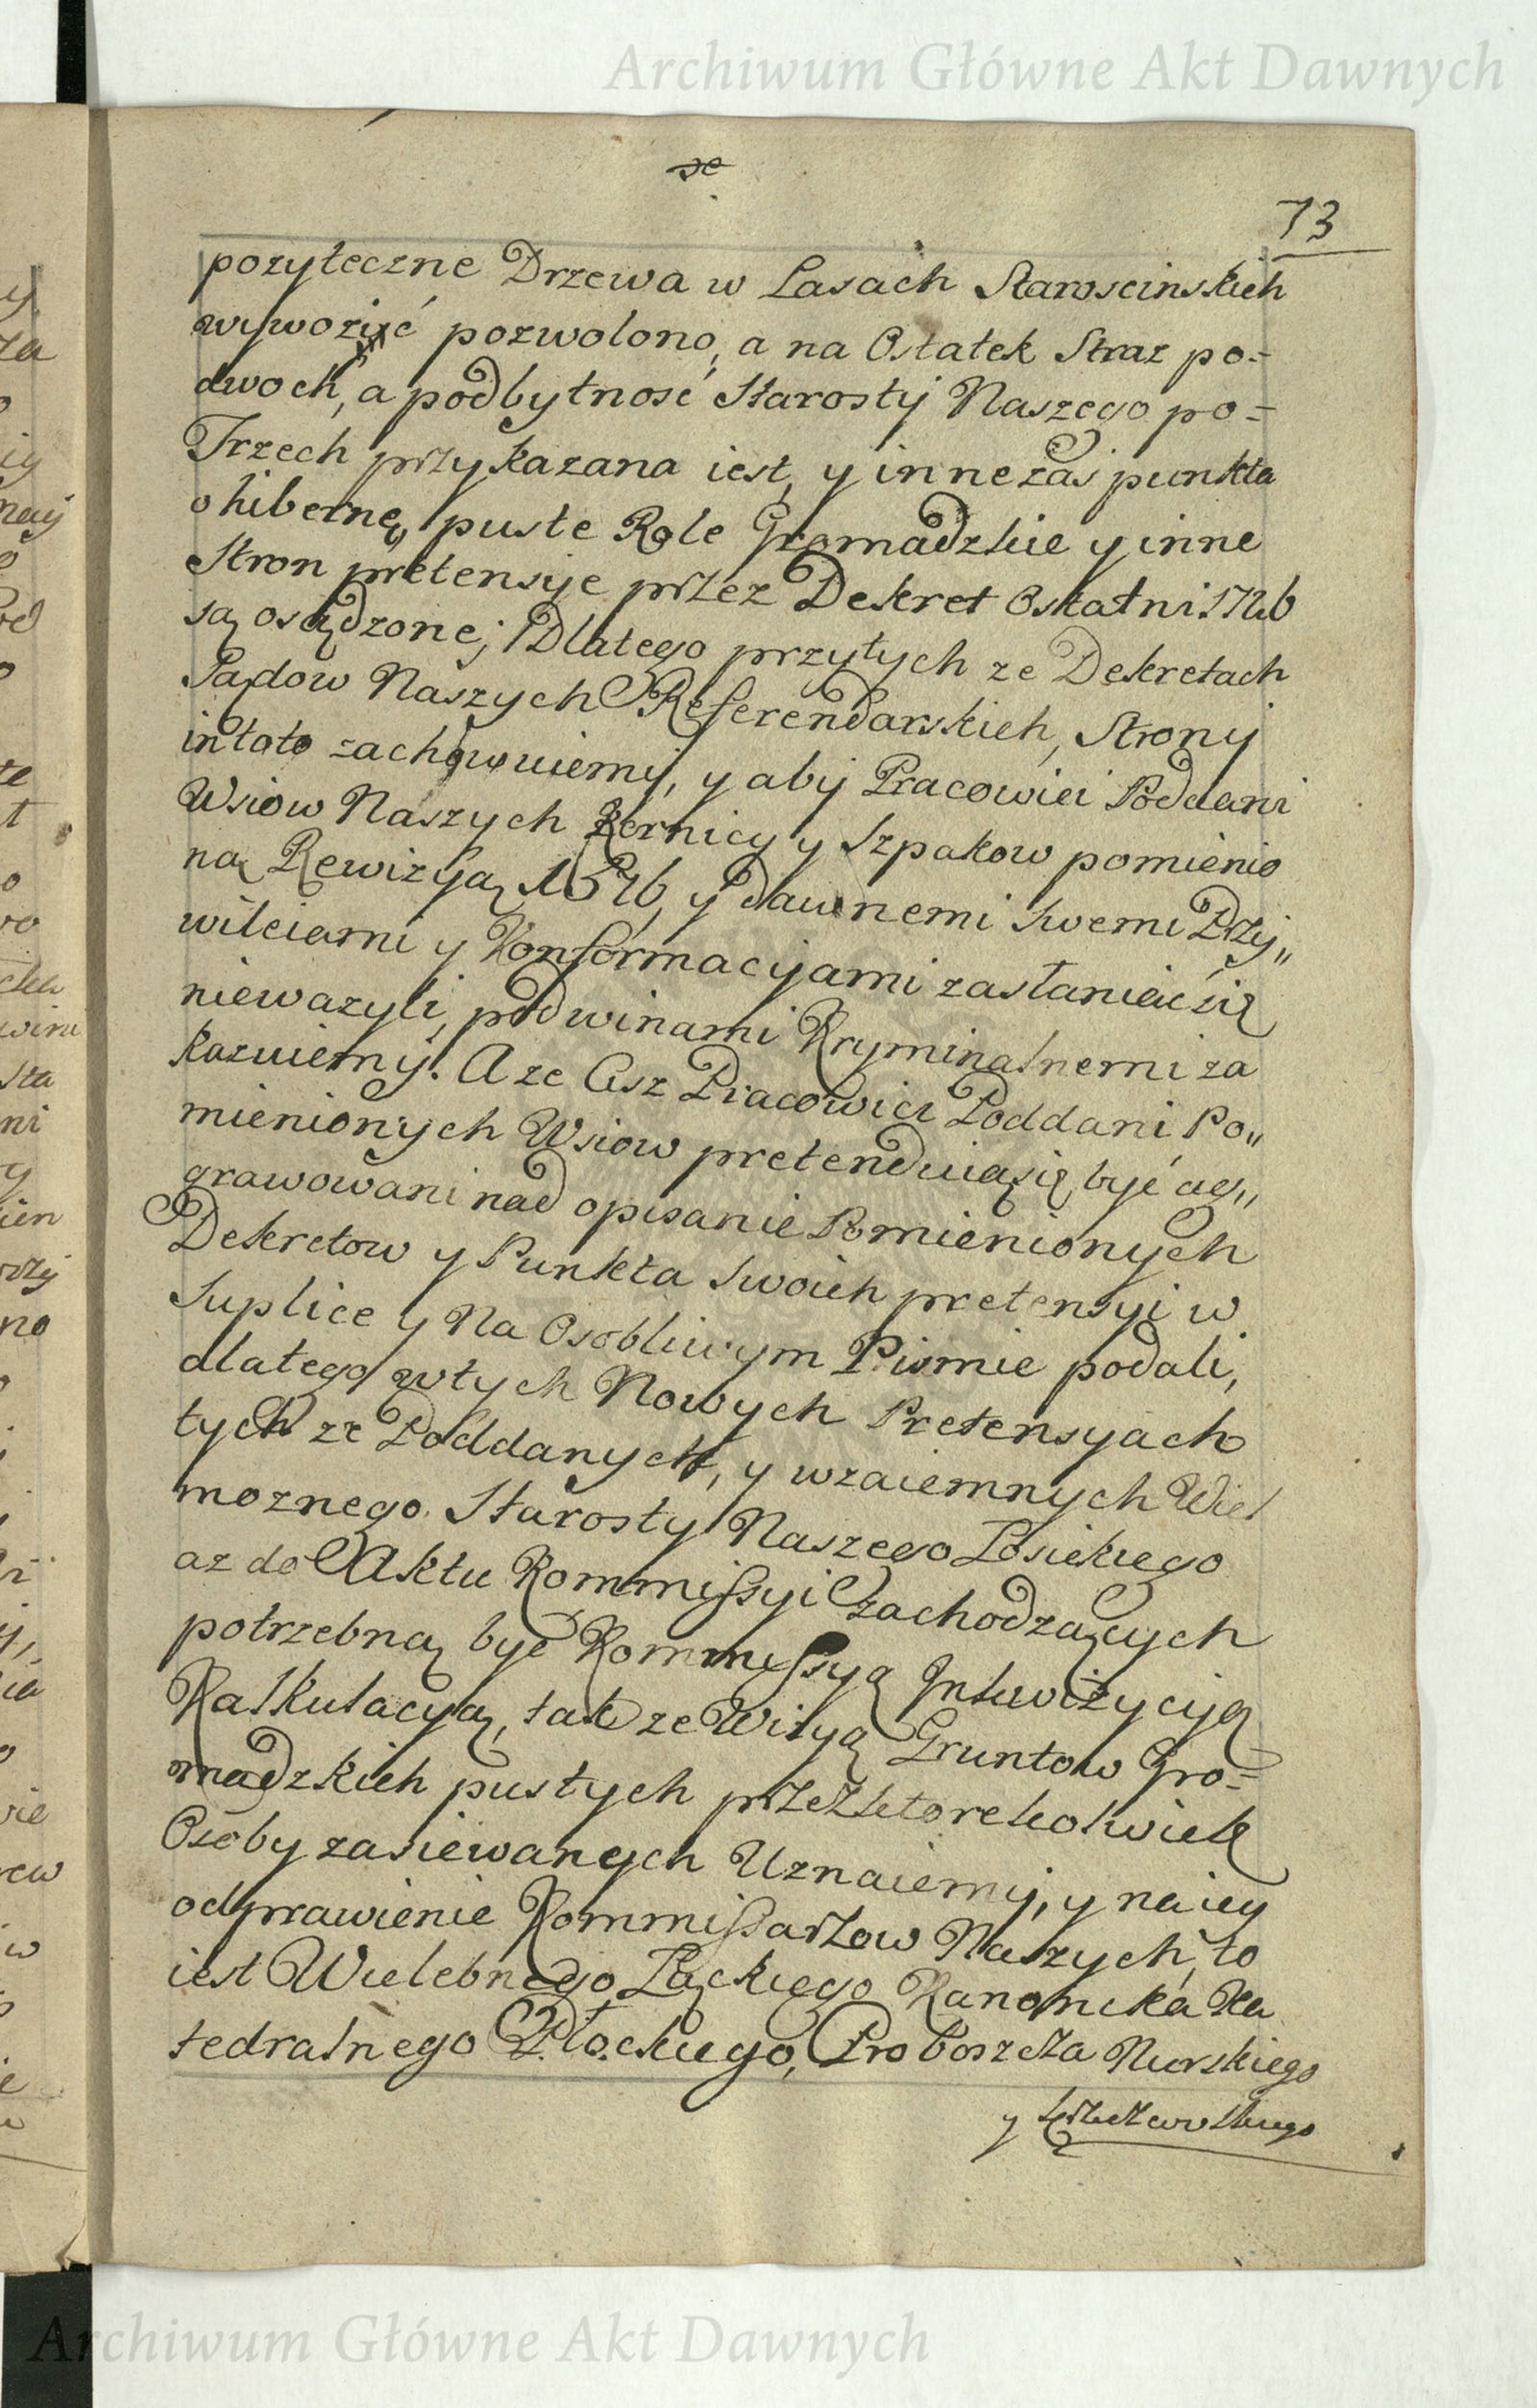 Archiwum Główne Akt Dawnych
73
pozyteczne Drzewa w Lasach Staroscinskich
wywozić pozwolono, a na Ostatek Straz po=
dwoch, a podbytnosć Starosty Naszego po=
Trzech przykazana iest, y inne zaś punkta
o hibernę, puste Role Gromadzkie y inne
Stron pretensye przez Dekret Ostatni 1726
są osądzone; Dlatego przytych ze Dekretach
Sądow Naszych Referendarskich, Strony
in toto zachowuiemy, y aby Pracowici Poddani
Wsiow Naszych Zernicy y Szpakow pomienio
ną Rewizyą 1576, y dawnemi swemi Przy„
wileiami y Konformacyjami zasłaniać się
niewazyli, pod winami Kryminalnemi za
kazuiemy. A ze Cisz Pracowici Poddani Po„
mienionych Wsiow pretenduią się być ag„
grawowani nad opisanie Pomienionych
Dekretow y Punkta swoich pretensyi w
Suplice y Na Osobliwym Pismie podali,
dlatego wtych Nowych Pretensyach
tych ze Poddanych, y wzaiemnych Wiel
moznego Starosty Naszego Łosickiego
az do Aktu Kommissyi zachodzących
potrzebną być Kommissyą Inkwizycyją
Kalkulacyą, tak ze Wizyą Gruntow Gro=
madzkich pustych przez ktorekolwiek
Osoby zasiewanych Uznaiemy, y na iey
odprawienie Kommissarzow Naszych, to
iest Wielebnego Łąckiego Kanonika Ka
tedralnego Płockiego, Proboszcza Nurskiego
y
Archiwum Główne Akt Dawnych